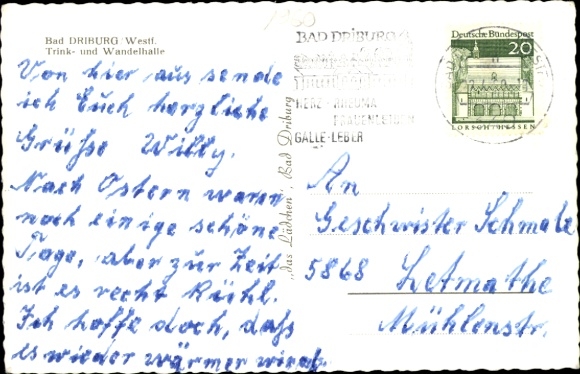 Bad DRIBURG/Westf.
Trink- und Wandelhalle
Von hier aus sende
ich Euch herzliche
Grüße Willy.
Nach Ostern waren
noch einige schöne
Tage, aber zur Zeit
ist es recht Kühl.
Ich hoffe doch, daß
es wieder wärmer wird.
"das Lädchen", Bad Driburg
1960
BAD DRIBURG
HERZ-RHEUMA
FRAUENLEIDEN
GALLE-LEBER
Deutsche Bundespost
20
LORSCH/HESSEN
An
Geschwister Schmale
5868 Letmathe
Mühlenstr.